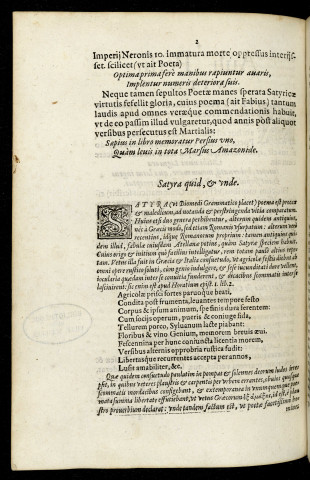 2
Imperij Neronis 10. immatura morte oppressus interijs-
set. scilicet (vt ait Poeta)
Optima prima ferè manibus rapiuntur auaris,
Implentur numeris deteriora suis.
Neque tamen sepultos Poetæ manes sperata Satyricæ
virtutis fefellit gloria, cuius poema (ait Fabius) tantum
laudis apud omnes veræque commendationis habuit,
vt de eo passim illud vulgaretur, quod annis pòst aliquot
versibus persecutus est Martialis:
Sæpius in libro memoratur Persius vno,
Quàm leuis in tota Marsus Amazonide.
Satyra quid, & vnde.
SATYRA (vt Diomedi Grammatico placet) poema est procax
& maledicum, ad notanda & perstringenda vitia comparatum.
Huius etsi duo genera perhibentur, alterum quidem antiquis,
à Græcis modo, sed etiam Romanis vsurpatum: alterum
recentius, idque Romanorum proprium: tamen antiquius qui-
dem illud, fabulæ Atellanæ potius, quàm Satyræ speciem habent.
Cuius origo & initium quò facilius intelligatur, rem totam paulò altius repe-
tam. Vetus illa fuit in Græcia & Italia consuetudo, vt agricolæ festis diebus ab
omni opere rustico soluti, cùm genio indulgere, & sese iucunditati dare vellent,
iocularia quædam inter se conuitia funderent, & dicacibus scommatis inter se
lusitarent: sic enim est apud Horatium epist. 1. lib. 2.
Agricolæ prisci fortes paruoque beati,
Condita post frumenta, leuantes tempore festo
Corpus & ipsum animum, spe finis dura ferentem:
Cum socijs operum, pueris & coniuge fida,
Tellurem porco, Syluanum lacte piabant:
Floribus & vino Genium, memorem breuis æui.
Fescennina per hunc conuecta licentia morem,
Versibus alternis opprobria rustica fudit:
Libertasque recurrentes accepta per annos,
Lusit amabiliter, &c.
Quæ quidem consuetudo paulatim in pompas & solennes deorum ludos
in quibus veteres plaustris & carpentis per vrbem errantes, obuios quosque
scommatis mordacibus configebant, & extemporanea in vnumquemque poe-
mata summa libertate effutiebant, vt vetus Græcorum
strò prouerbium declarat: vnde tandem factum est, vt poetæ